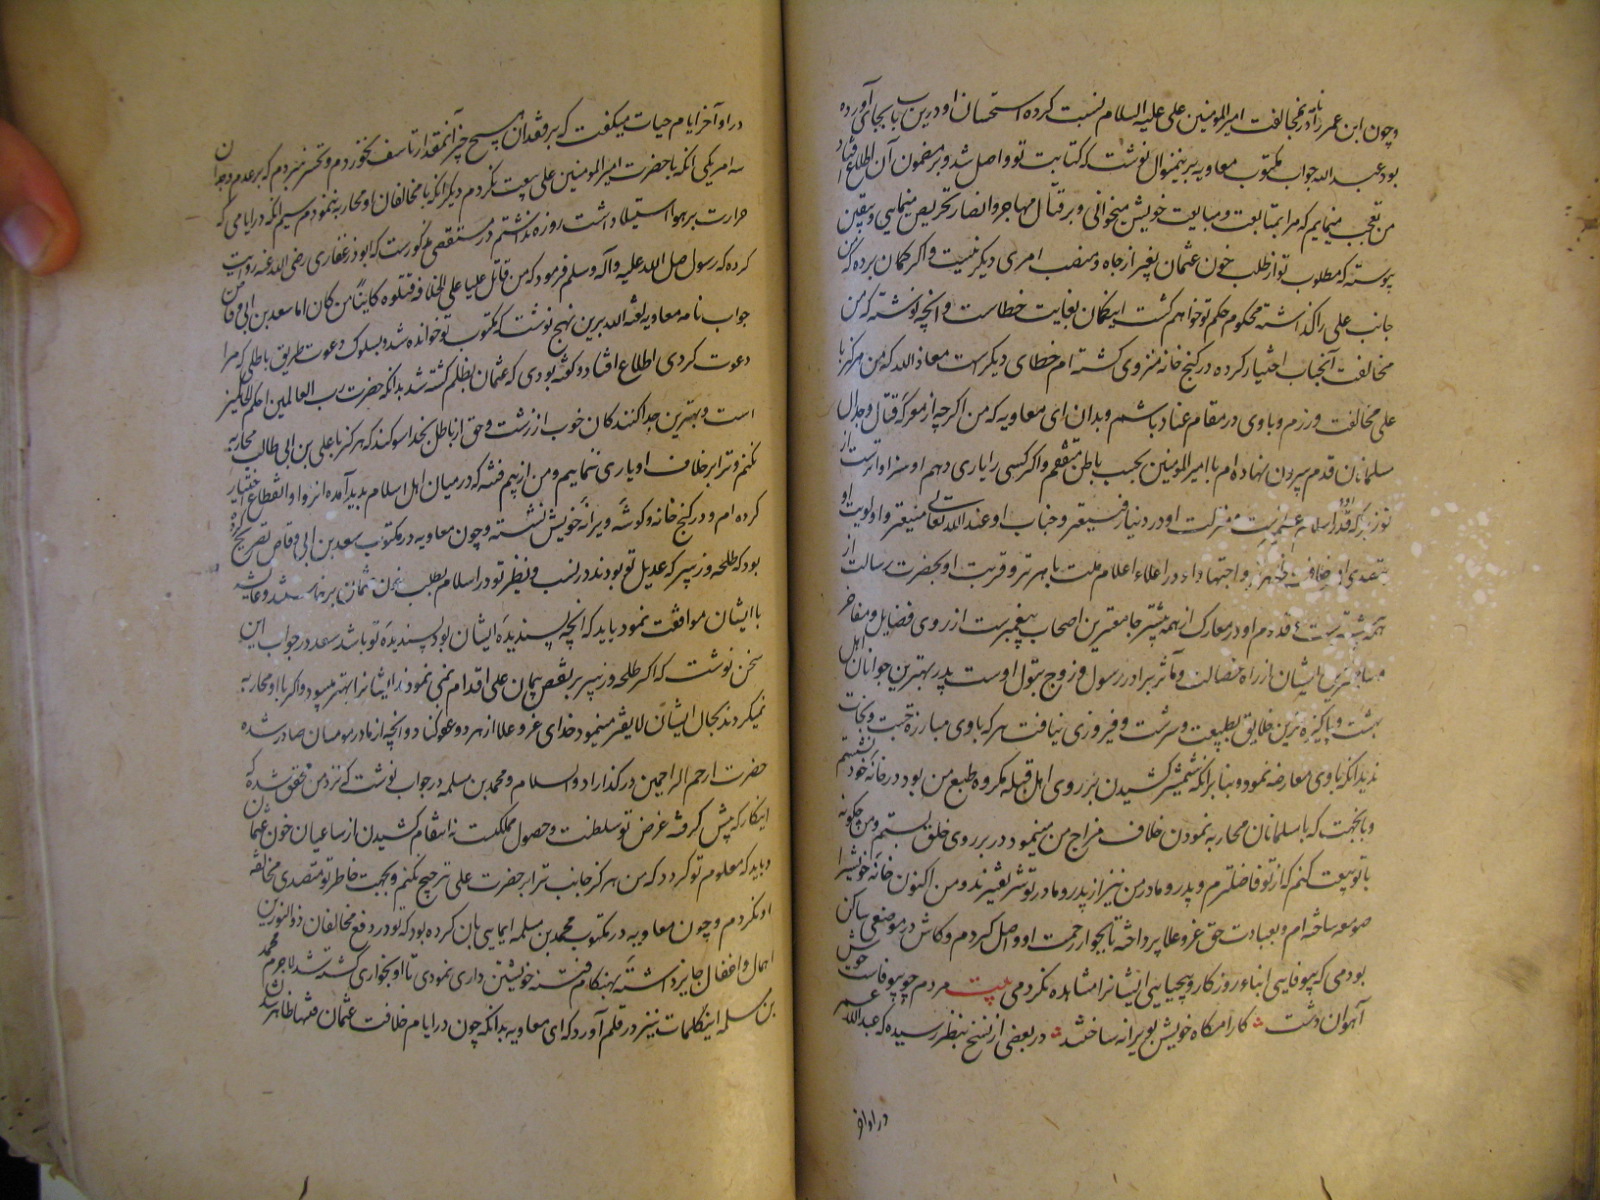 وچون ابن عمر را در مخالفت امیرالمومنین علی علیه السلام نسبت کرده استحسان او درین باب بجای آورده
بود عبد الله جواب مکتوب معاویه برینمنوال نوشت که کتابت تو واصل شد و بر مضمون آن اطلاع افتاد
من تعجب مینمایم که مرا بمتابعت و مبایعت خویش میخوانی و بر قتال مهاجر و انصار تحریص مینمایی و بیقین
پیوسته که مطلوب تو از طلب خون عثمان بغیر از جاه و منصب امری دیگر نیست و اگر گمان برده که من
جانب علی را گذاشته محکوم حکم تو خواهم گشت اینگمان بغایت خطاست و آنچه نوشته که من
مخالفت آنجناب اختیار کرده در کنج خانه منزوی گشته ام خطای دیگرست معاذ الله که من هرگز با
علی مخالفت ورزم و با وی در مقام عناد باشم و بدان ای معاویه که من اگرچه از معرکه قتال و جدال
مسلمانان قدم بیرون نهاده ام با امیرالمومنین بحسب باطن متفقم و اگر کسی را یاری دهم او سزاوارترست از
تو زیرا که منزلت او در دنیا رفیعتر و جناب او عند الله تعالی منیعتر و اولویت او
و اجتهاد او در اعلاء اعلام ملت باهرتر و قربت او بحضرت رسالت از
همه بیشترست و قدوم او در معارک از همه پیشتر جامعترین اصحاب پیغمبرست از روی فضایل و مفاخر
ایشان از راه خصالت و مآثر برادر رسول و زوج بتول اوست پدر بهترین جوانان اهل
بهشت و پاکیزه ترین خلایق بطبیعت و سرشت و فیروزی نیافت هر که با وی مبارزه جست و نجات
ندید آنکه با وی معارضه نمود و بنا بر آنکه شمشیر کشیدن بر روی اهل قبله مکروه طبع من بود در خانه خود نشستم
و بانجهت که با مسلمانان محاربه نمودن خلاف مزاج من مینمود در بر روی خلق بستم و من چگونه
با تو بیعت کنم که از تو فاضلترم و پدر و مادر من نیز از پدر و مادر تو شریفترند و من اکنون خانه خویش را
صومعه ساخته ام و بعبادت حق عز و علا پرداخته تا بجوار رحمت او واصل گردم و کاش در موضعی ساکن
بودمی که بیوفایی ابناء روزگار و بیحیایی ایشانرا مشاهده نکردمی بیت مردم چو بیوفاست خویش
آهوان دشت کارامگاه خویش بویرانه ساختند در بعضی از نسخ بنظر رسیده که عبدالله عمر
در اواخر
در اواخر ایام حیات میگفت که بر فقدان هیچ چیز آنمقدار تاسف نخوردم و تحسر نبردم که بر عدم وجدان
سه امر یکی آنکه با حضرت امیرالمومنین علی بیعت نکردم دیگر آنکه با مخالفان او محاربه ننمودم سیم آنکه در ایامی که
حرارت بر هوا استیلا داشت روزه نداشتم در مستقصی مذکورست که ابوذر غفاری رضی الله عنه روایت
کرده که رسول صلی الله علیه و آله و سلم فرمود که من قاتل علیا علی الخلافه فقتلوه کاینا من کان اما سعد بن ابی وقاص
جواب نامه معاویه لعنه الله برین نهج نوشت که مکتوب تو خوانده شد و بسلوک دعوت طریق باطلی که مرا
دعوت کردی اطلاع افتاد و گفته بودی که عثمان بظلم کشته شد بدانکه حضرت رب العالمین احکم الحاکمین
است و بهترین جدا کنندگان خوب از زشت و حق از باطل بخدا سوگند که هرگز با علی بن ابی طالب محاربه
نکنم و ترا بر خلاف او یاری ننمایم و من از بیم فتنه که در میان اهل اسلام پدید آمده انزوا و انقطاع اختیار
کرده ام و در کنج خانه و گوشه ویرانه خویش نشسته و چون معاویه در مکتوب سعد بن ابی وقاص تصریح کرده
بود که طلحه و زبیر که عدیل تو بودند در نسب و نظیر تو در اسلام بطلب خون عثمان برخاستند و عایشه
با ایشان موافقت نمود باید که آنچه پسندیده ایشان بود پسندیده تو باشد سعد در جواب این
سخن نوشت که اگر طلحه و زبیر بر نقض پیمان علی اقدام نمی نمودند ایشانرا بهتر میبود و اگر با او محاربه
نمیکردند بحال ایشان لایقتر مینمود خدای عز و علا از هر دو عفو کناد و آنچه از مادر مومنان صادر شده
حضرت ارحم الراحمین درگذاراد والسلام و محمد بن مسلمه در جواب نوشت که نزد من محقق شده که
اینکار که پیش گرفته غرض تو سلطنت و حصول مملکتست نه انتقام کشیدن از ساعیان خون عثمان
و باید که معلوم تو گردد که من هرگز جانب ترا بر حضرت علی ترجیح نکنم و بجهت خاطر تو متصدی مخالفه
او نگردم و چون معاویه در مکتوب محمد بن مسلمه ایمایی بان کرده بود که تو در دفع مخالفان ذوالنورین
اهمال و اغفال جایز داشته بهنگام فتنه خویشتن داری نمودی تا او بخواری کشته شد لاجرم محمد
بن مسلمه اینکلمات نیز در قلم آورد که ای معاویه بدانکه چون در ایام خلافت عثمان فتنها ظاهر شدن